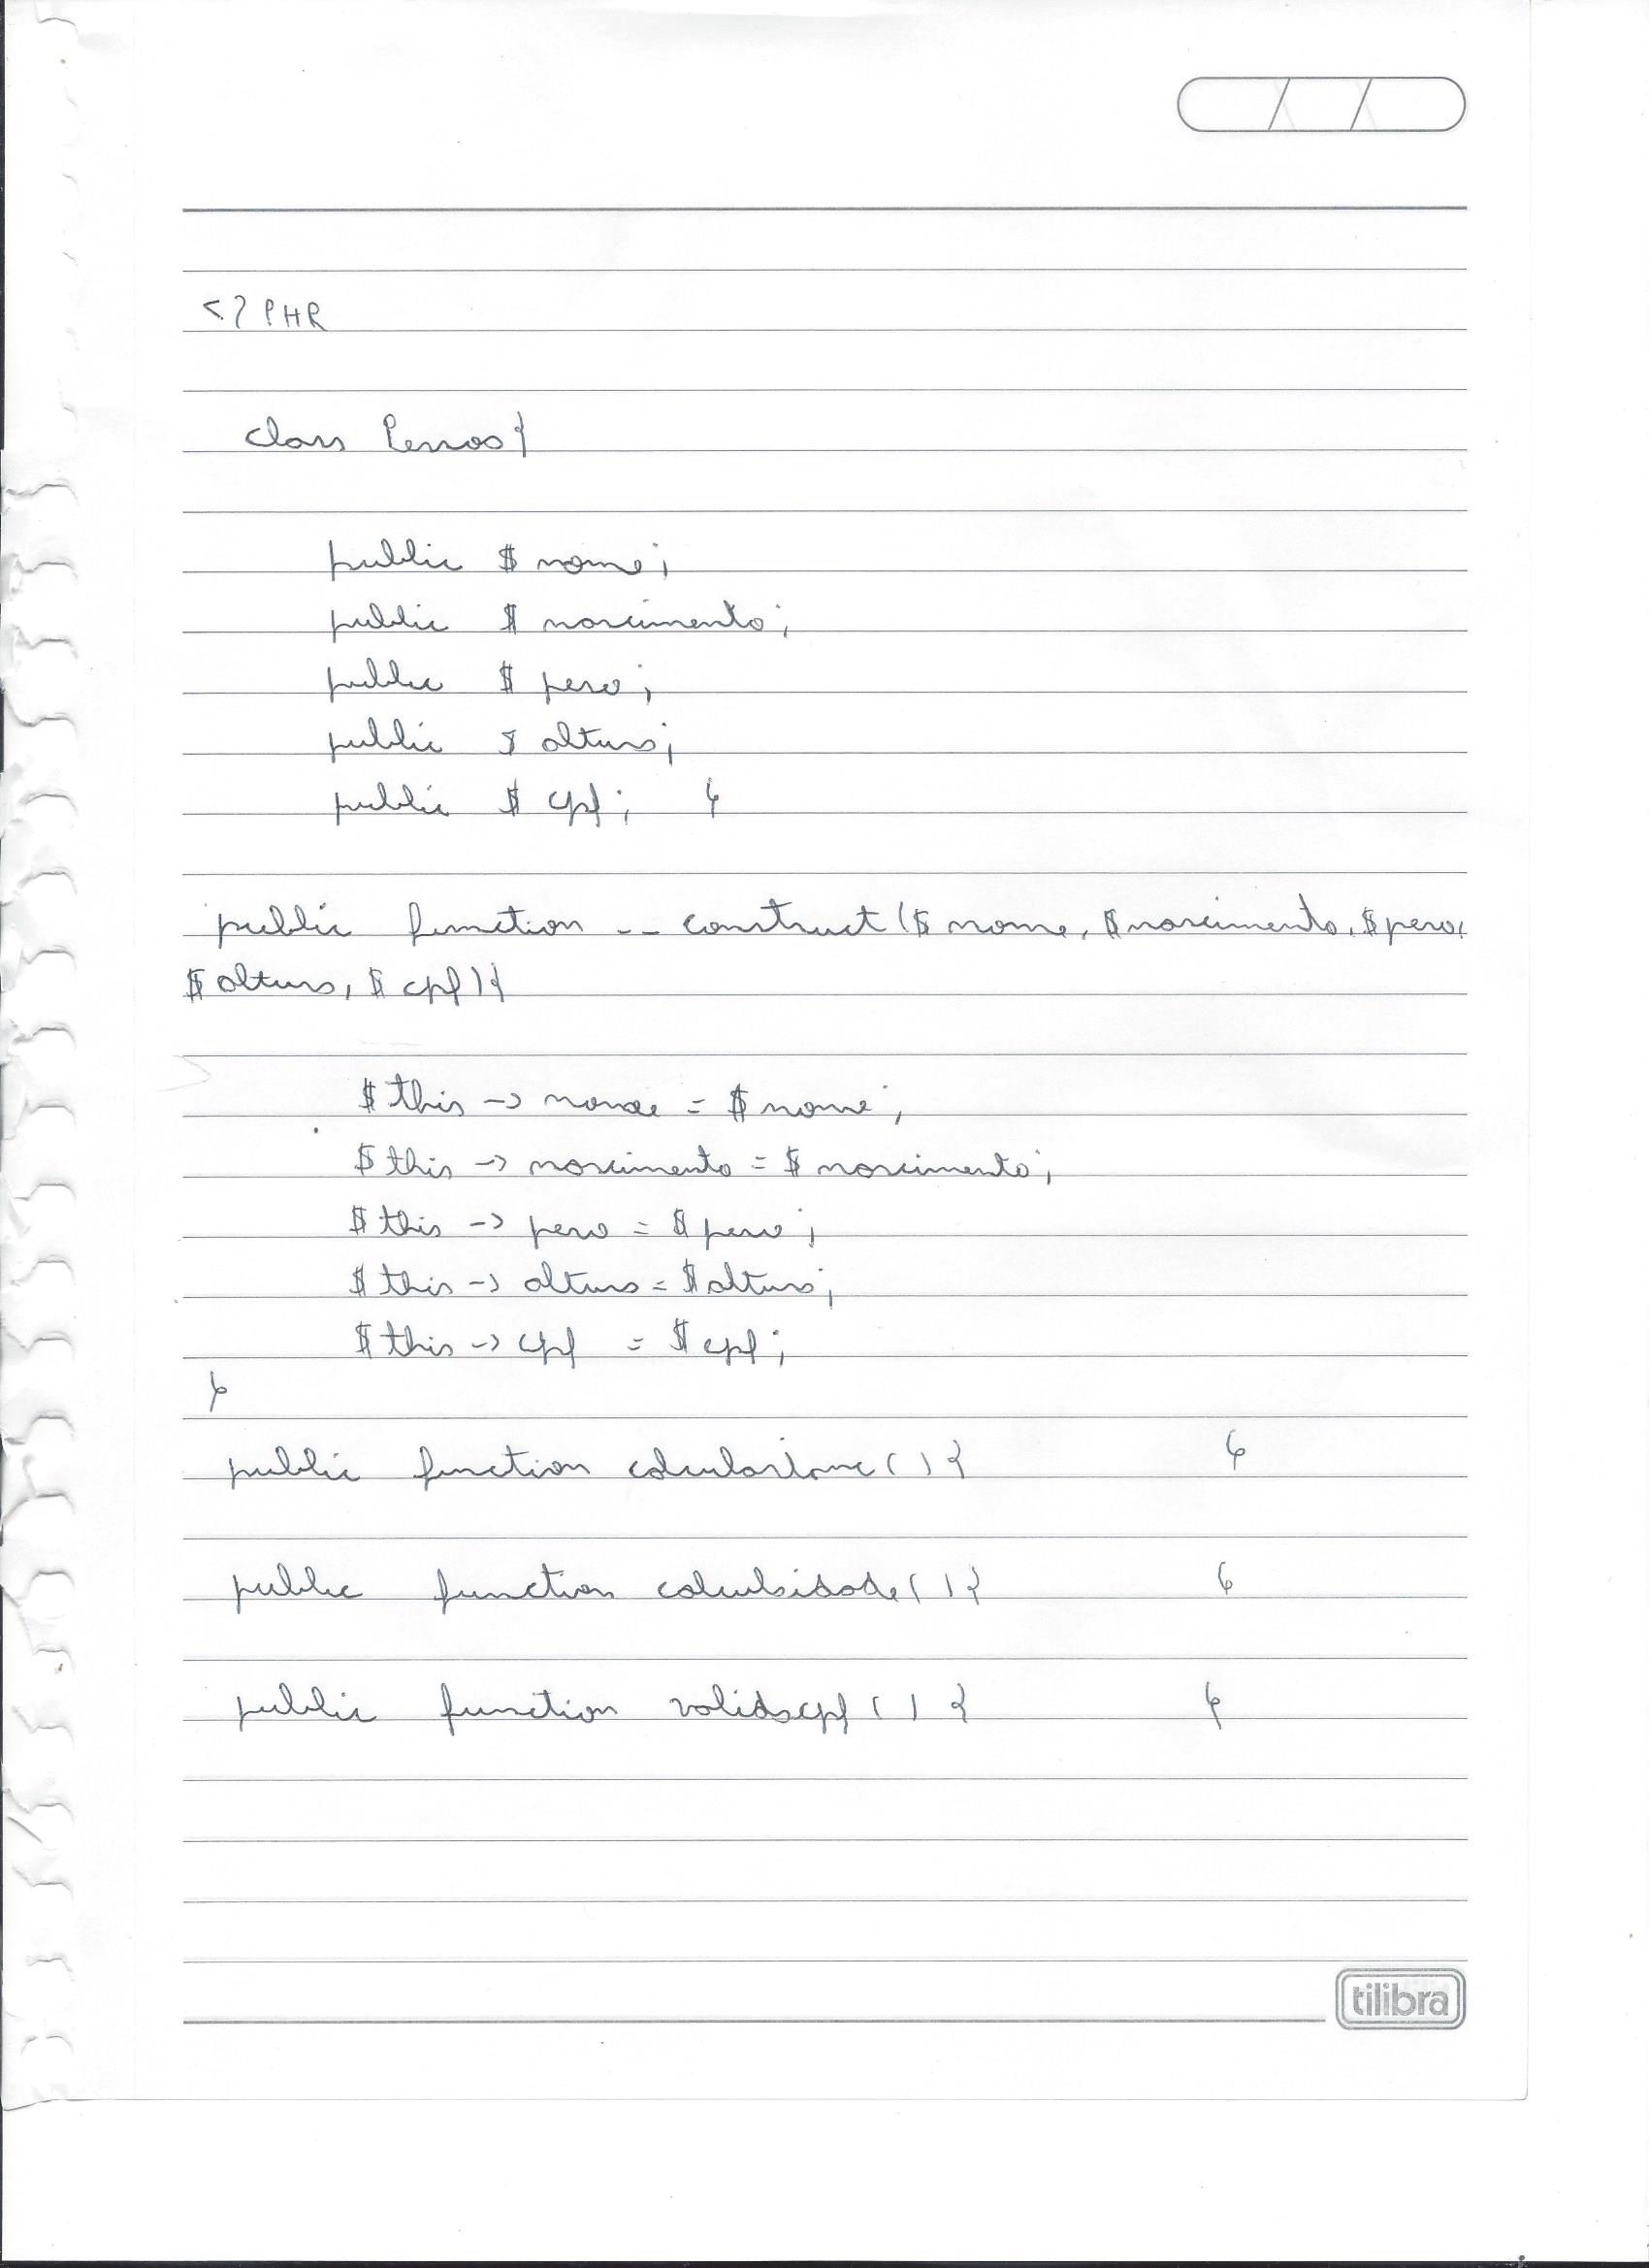 <? PHP
class Pessoa{
public $ nome;
public $ nascimento;
public $ peso;
public $ altura;
public $ cpf; }
public function __ construct ($ nome, $ nascimento, $ peso,
$ altura, $ cpf ){
$ this -> nome = $ nome;
$ this -> nascimento = $ nascimento;
$ this -> peso = $ peso;
$ this -> altura = $ altura;
$ this -> cpf = $ cpf;
}
public function calcularimc ( ) { }
public function calculaidade ( ) { }
public function validacpf ( ) { }
tilibra